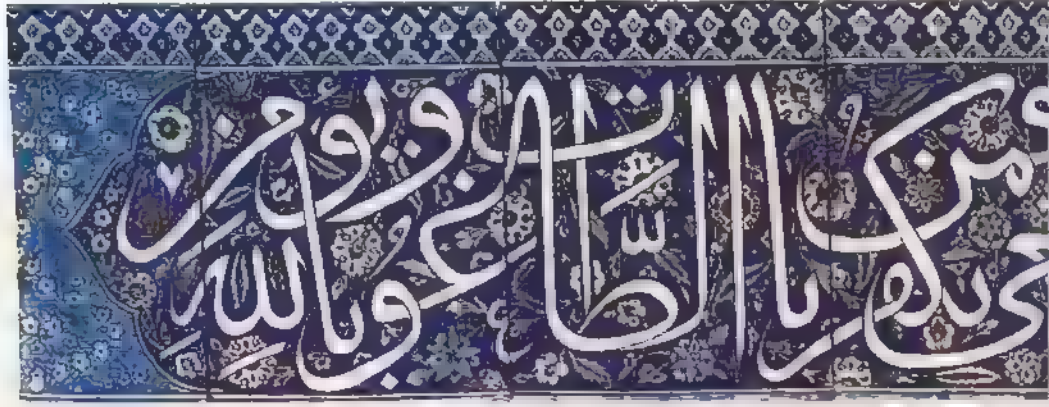 فمن يكفر بالطّاغوت ويؤمن بالله